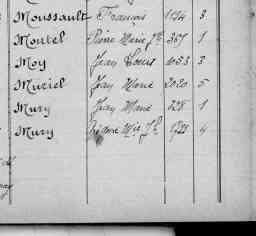 Moussault François 1124 3
Montel Pierre Marie Jh 367 1
Moy Jean Louis 1053 3
Muriel Jean Marie 2020 5
Mury Jean Marie 328 1
Mury Mie Jh 1721 4